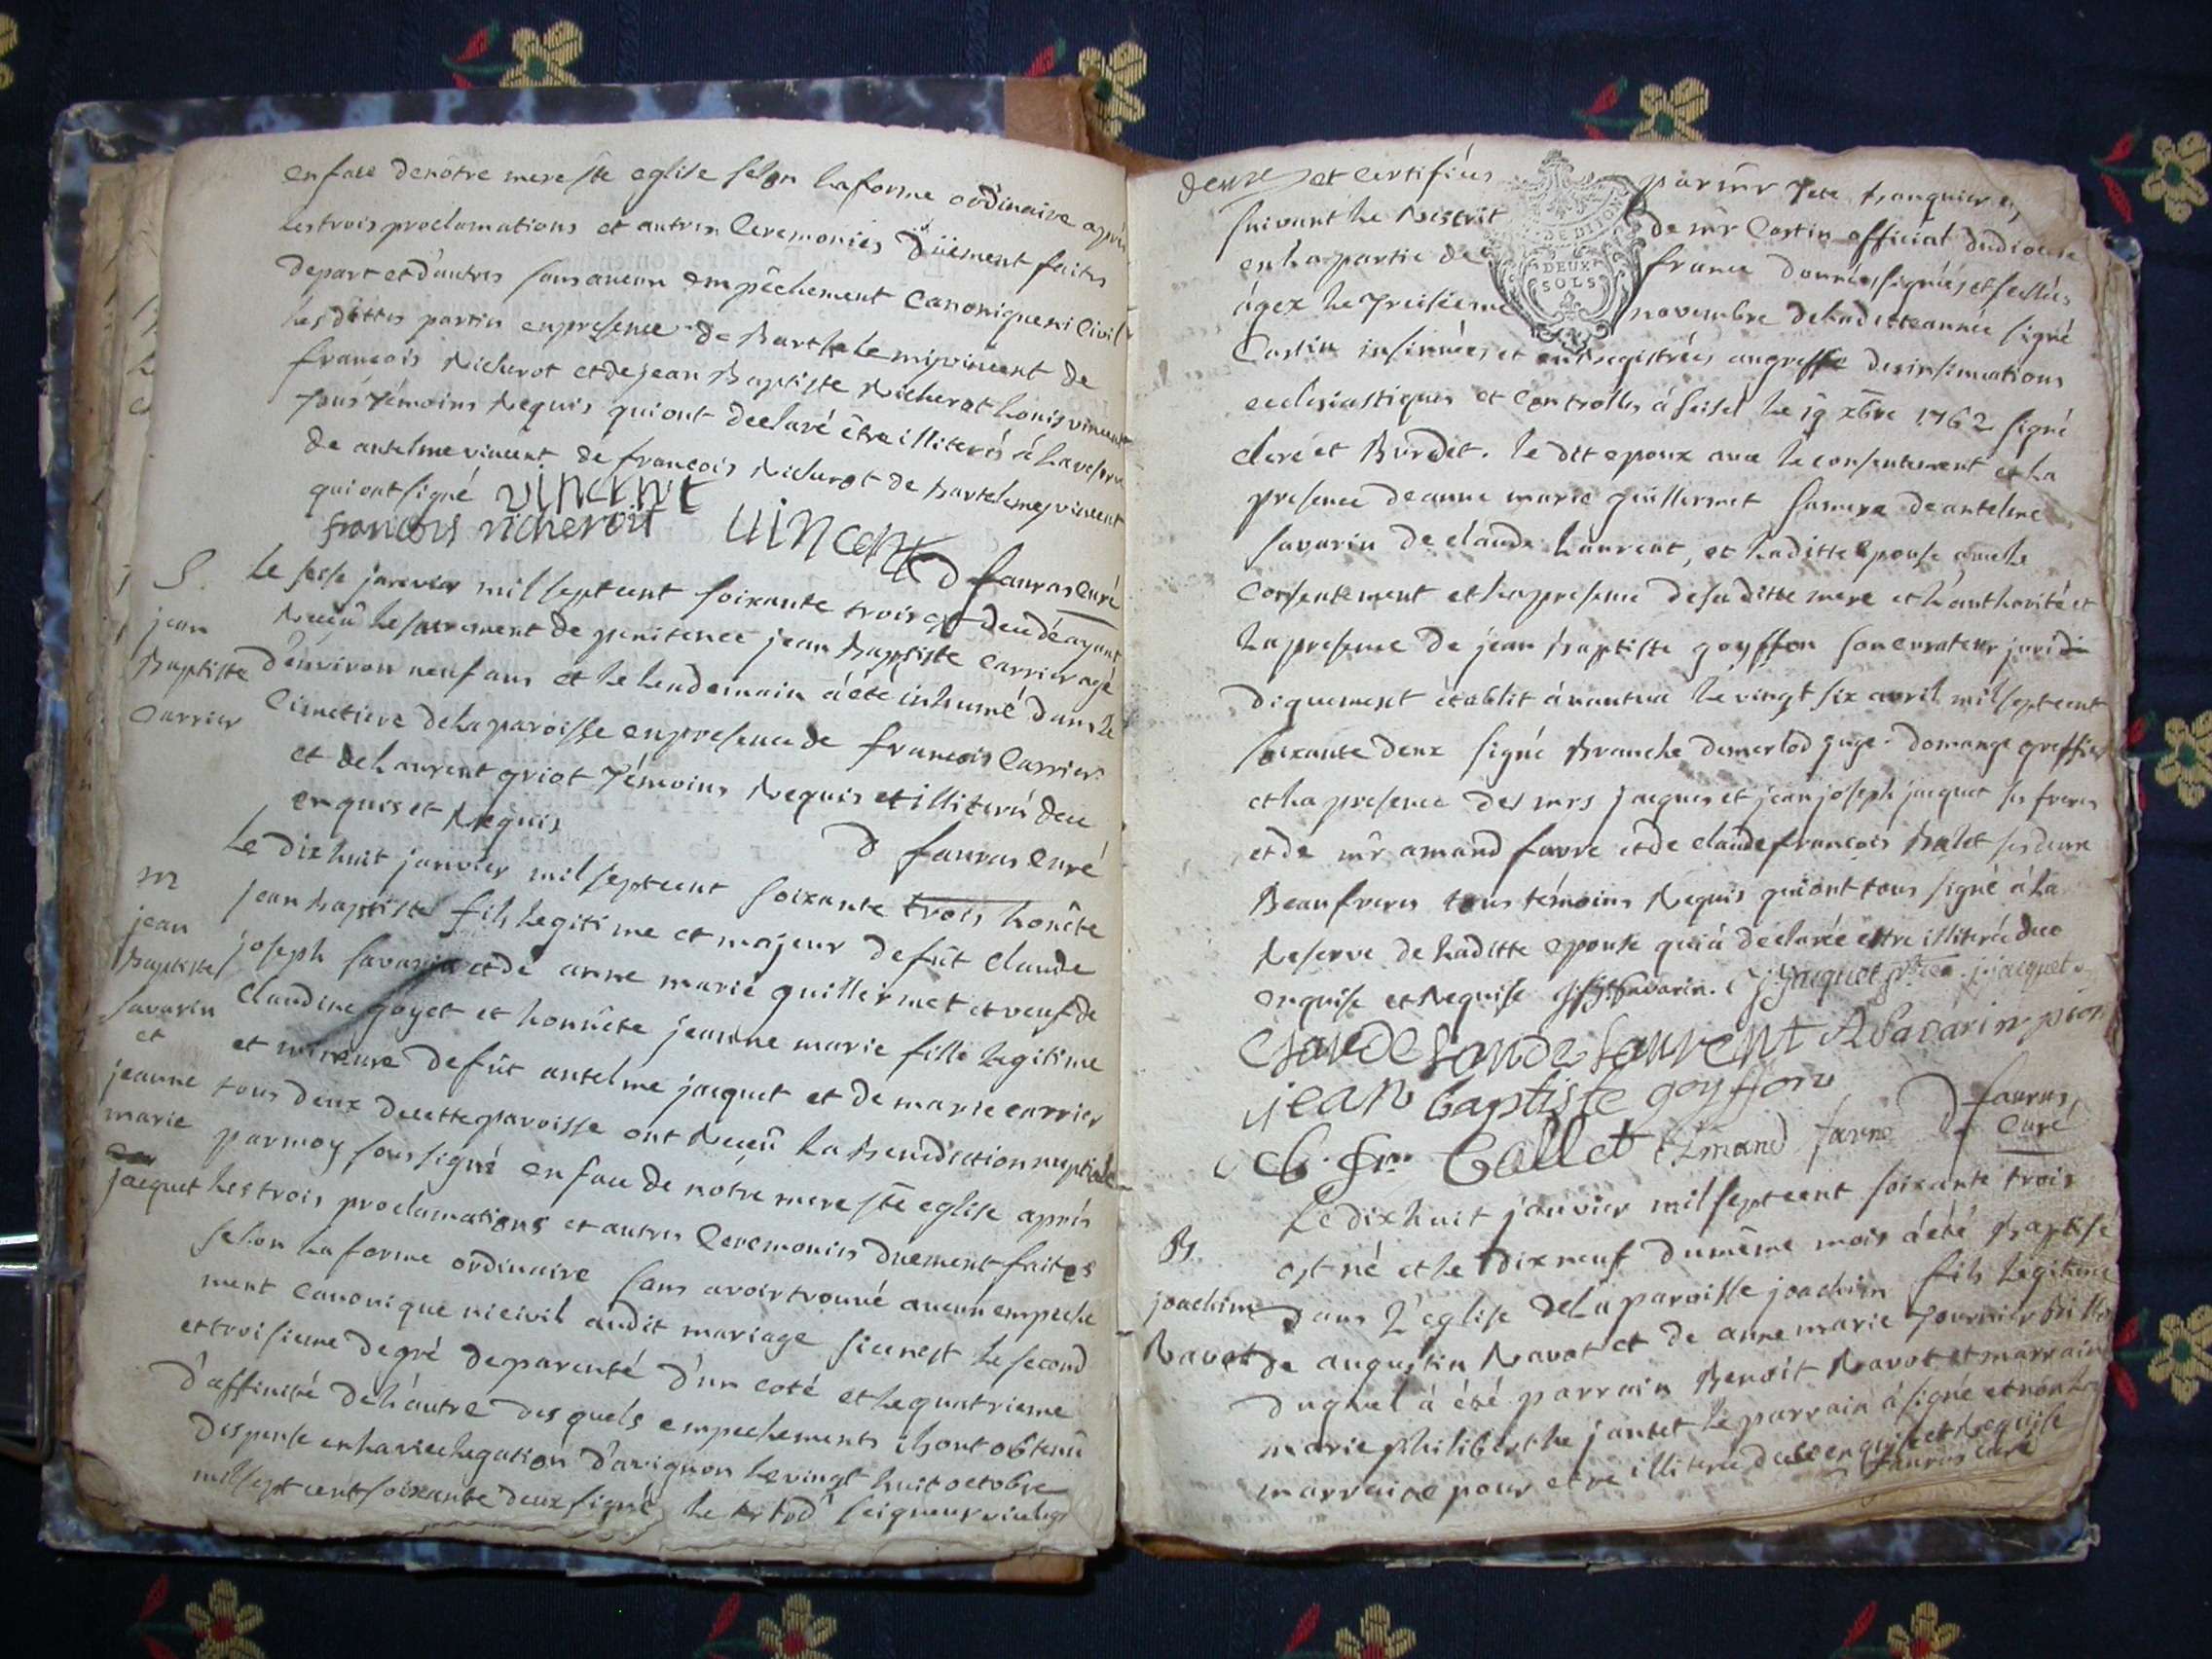 en face de nôtre mere ste eglise selon la forme ordinaire après
les trois proclamations et autres Ceremonies düement faites
de part et d'autres sans aucun empêchement Canonique ni Civil
les dittes parties en presence de Barthelemi vincent de
francois Richerot et de jean Baptiste Richerot Louis vincent
tous témoins Requis qui ont declaré être illiterés à la reserve
de antelme vincent de francois Richerot de bartelemey vincent
qui ont signé vincent
francois richeroit vincent D fauras Curé
S.
jean
Baptiste
Carrier
Le sese janvier mil sept cent soixante trois est decedé ayant
Receu le sacrement de penitence jean Baptiste Carrier agé
d'environ neuf ans et le lendemain à été inhumé dans le
Cimetiere de la paroisse en presence de francois Carrier
et de Laurent griot témoins Requis et illiterés de ce
enquis et Requis
D fauras Curé
m
jean
Baptiste
Savarin
et
jeanne
marie
jacquet
Le dix huit janvier mil sept cent soixante trois honête
jean baptiste fils legitime et majeur de fût Claude
joseph Savarin et de anne marie guillermet et veuf de
Claudine goyet et honnête jeanne marie fille legitime
et mineure de fût antelme jacquet et de marie carrier
tous deux de cette paroisse ont Receû la Benediction nuptiale
par moy sous signé en face de nôtre mere ste eglise après
les trois proclamations et autres Ceremonies duement faites
selon la forme ordinaire sans avoir trouvé aucun empeche
ment canonique ni civil audit mariage si ce n'est le second
et troisieme degré de parenté d'un coté et le quatrieme
d'affinité de l'autre des quels empechements ils ont obtenû
dispense en la vice legation d'avignon le vingt huit octobre
mil sept cent soixante deux signé le seigneur viceleg
et certifiés par mr
suivant le Rescrit de mr Costin official du diocese
en la partie de france données signées et scellées
à gex le treisieme novembre de la ditte année signé
Costin insinuées et enregistrées au greffe des insinuations
ecclesiastiques et Controlles à seisel le 19 xbre 1762 signé
clerc et Burdet. le dit epoux avec le consentement et la
presence de anne marie guillermet sa mere de antelme
savarin de claude Laurent, et la ditte epouse avec le
Consentement et la presence de sa ditte mere et l'authorité et
la presence de jean baptiste goyffon son curateur juridi
diquement établit à nantua le vingt six avril mil sept cent
soixante deux signé Branche demerlod juge. domange greffier
et la presence des mrs jacques et jean joseph jacquet ses freres
et de mr amand favre et de claude francois Balet ses deux
Beaufreres tous témoins Requis qui ont tous signé à la
Reserve de la ditte epouse qui à declarée être illiterée de ce
enquise et Requise Savarin. jacquet j. j. jacquet
Laurent A Savarin
jean baptiste goyffon D fauras
Cl. fr. Ballet Amand favre Curé
B.
joachim
Ravot
Le dix huit janvier mil sept cent soixante trois
est né et le dix neuf du même mois à été Baptisé
dans l'eglise de la paroisse joachim fils legitime
de augustin Ravot et de anne marie
du quel à été parrain Benoit Ravot et marraine
marie philiberthe jantet le parrain à signé et non la
marraine pour etre illiterée de ce enquise et Requise
fauras curé
DE DIJON
DEUX
SOLS